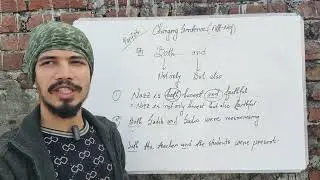 Changing Sentences (
Both and
Not only But also
① Naaz is both honest and faithful
- Naaz is not only honest but also faithful
② Both Sahib and Saba were
Both the teacher and the students were present